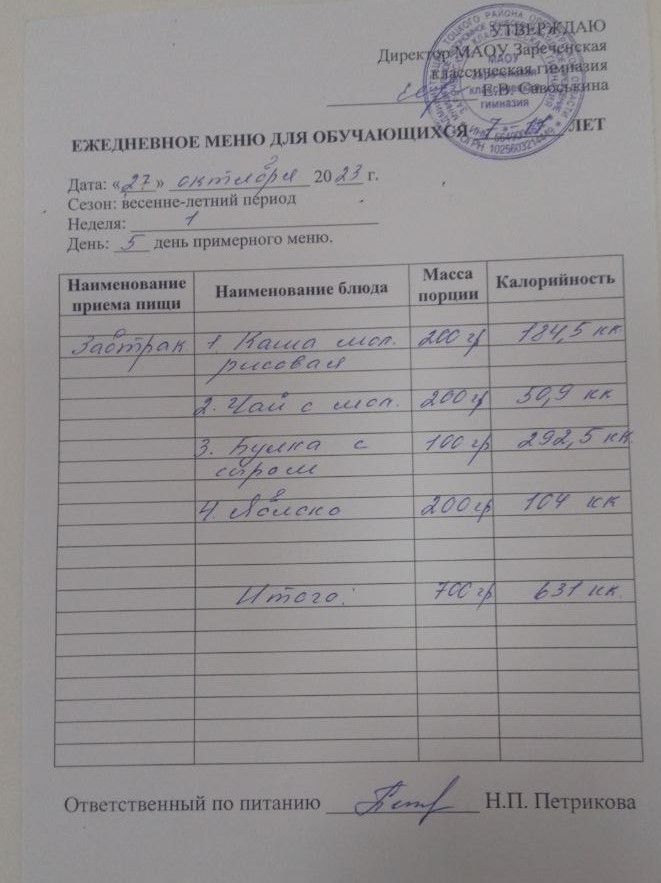 УТВЕРЖДАЮ
Директор МАОУ Зареченская
классическая гимназия
Е.В. Савоськина
МАОУ
Зареченская
классическая
гимназия
ОГРН 1025603214449
ЕЖЕДНЕВНОЕ МЕНЮ ДЛЯ ОБУЧАЮЩИХСЯ 7 - ЛЕТ
Дата: «27» октября 2023 г.
Сезон: весенне-летний период
Неделя: 1
День: 5 день примерного меню.
Наименование приема пищи Наименование блюда Масса порции Калорийность
Завтрак 1. Каша мол. 200 гр 184,5 кк
рисовая
2. Чай с мол. 200 гр 50,9 кк
3. Булка с 100 гр 292,5 кк
сыром
4. Яблоко 200 гр 104 кк
Итого: 700 гр 631 кк.
Ответственный по питанию Н.П. Петрикова